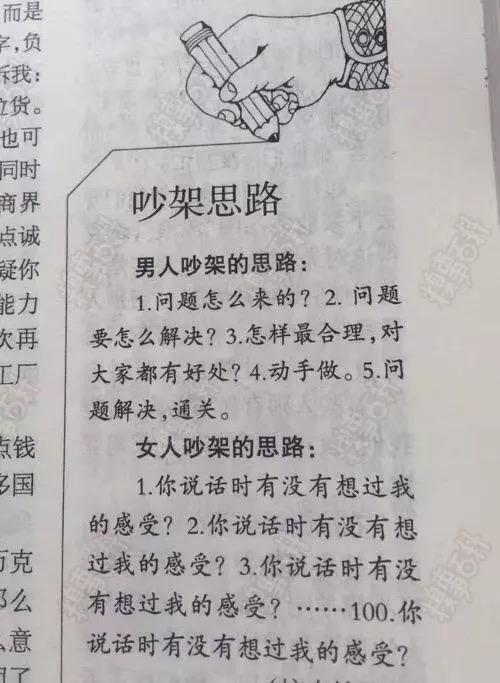 而是
字,负
诉我:
位货。
也可
同时
商界
点诚
疑你
能力
次再
工厂
点钱
多国
万克
那么
么意
吵架思路
男人吵架的思路:
1.问题怎么来的? 2. 问题
要怎么解决? 3.怎样最合理,对
大家都有好处? 4.动手做。5.问
题解决,通关。
女人吵架的思路:
1.你说话时有没有想过我
的感受? 2.你说话时有没有想
过我的感受? 3.你说话时有没
有想过我的感受? ……100.你
说话时有没有想过我的感受?